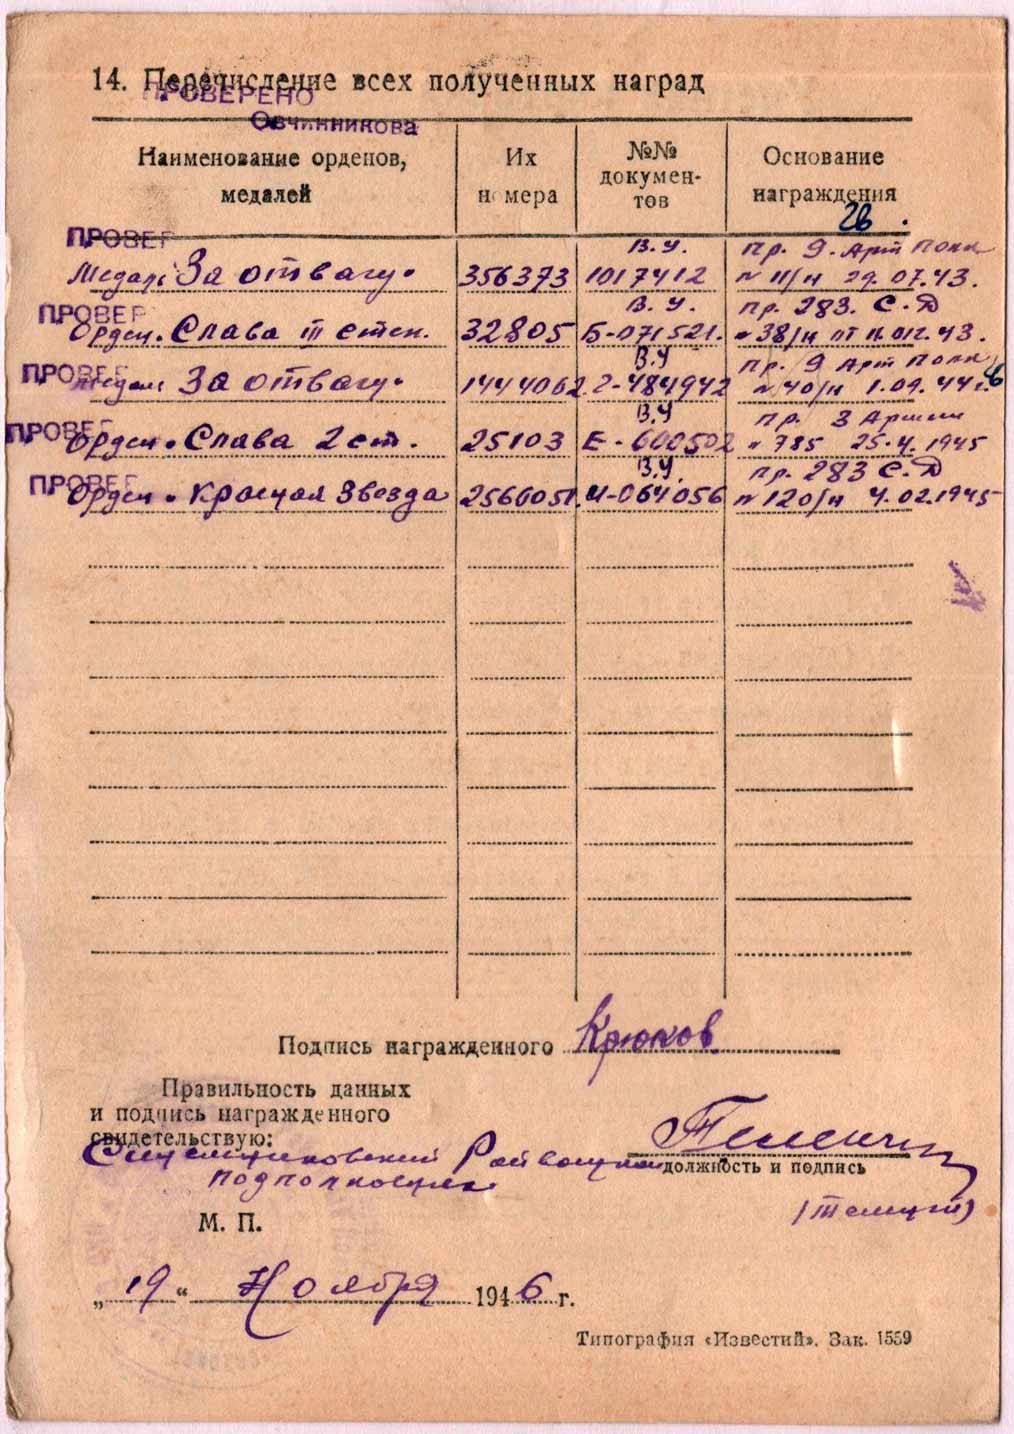 14. Перечисление всех полученных наград
ПРОВЕРЕНО
Овчинникова
Наименование орденов, медалей
Их номера
№№ докумен-
тов
Основание награждения
26
ПРОВЕР
Медаль За отвагу. 356373 В.У. 1017412 Пр. 9 Арт Полк
№ 11/н 29.07.43.
ПРОВЕР
Орден. Слава III степ. 32805 В.У. Б-071521. Пр. 283. С.Д
38/н от 11.012.43.
ПРОВЕР
Медаль За отвагу. 1444062. В.У Г-484942 Пр. 9 Арт Полк
№ 40/н 1.09.44г.
ПРОВЕР
Орден. Слава 2 ст. 25103 В.У Е-600502 Пр. 3 Армии
785 25.4.1945
ПРОВЕР
Орден. Красная Звезда 2566051. В.У. И-064056 Пр. 283 С.Д
№ 120/н 4.02.1945
Подпись награжденного Крюков
Правильность данных
и подпись награжденного
свидетельствую:
Райвоенком
должность и подпись
Подполковник
М. П.
„19“ Ноября 1946 г.
Типография «Известий». Зак. 1559